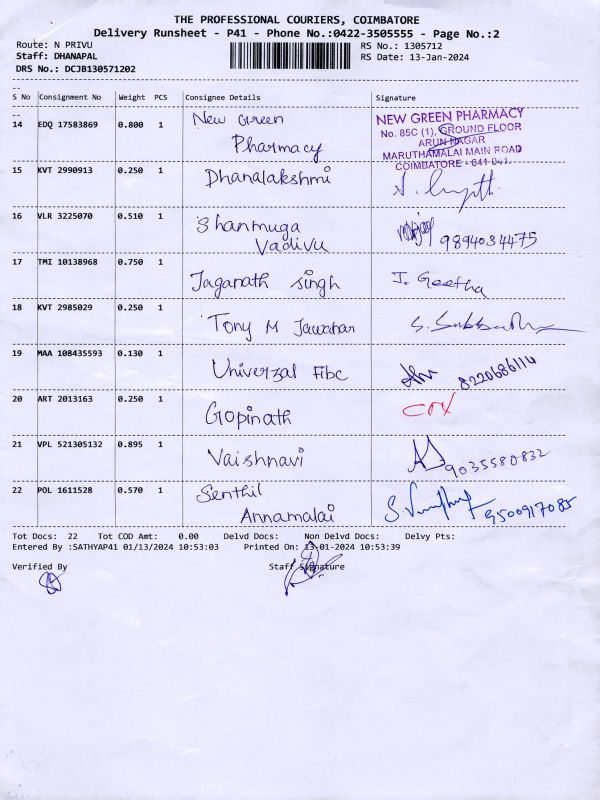 THE PROFESSIONAL COURIERS, COIMBATORE
Delivery Runsheet - P41 - Phone No.:0422-3505555 - Page No.:2
Route: N PRIVU RS No.: 1305712
Staff: DHANAPAL RS Date: 13-Jan-2024
DRS No.: DCJB130571202
S No Consignment No Weight PCS Consignee Details Signature
14 EDQ 17583869 0.800 1 New Green
Pharmacy
NEW GREEN PHARMACY
No. 85C (1), GROUND FLOOR
ARUN NAGAR
MARUTHAMALAI MAIN ROAD
COIMBATORE - 641 041.
15 KVT 2990913 0.250 1 Dhanalakshmi
16 VLR 3225070 0.510 1 Shanmuga
Vadivu 9894034475
17 TMI 10138968 0.750 1 Jaganath singh J. Geetha
18 KVT 2985029 0.250 1 Tony M Jawahar
19 MAA 108435593 0.130 1 Univerzal Fibc 8220686114
20 ART 2013163 0.250 1 Gopinath
21 VPL 521305132 0.895 1 Vaishnavi 9035580832
22 POL 1611528 0.570 1 Senthil
Annamalai 9500917085
Tot Docs: 22 Tot COD Amt: 0.00 Delvd Docs: Non Delvd Docs: Delvy Pts:
Entered By :SATHYAP41 01/13/2024 10:53:03 Printed On: 13-01-2024 10:53:39
Verified By Staff Signature